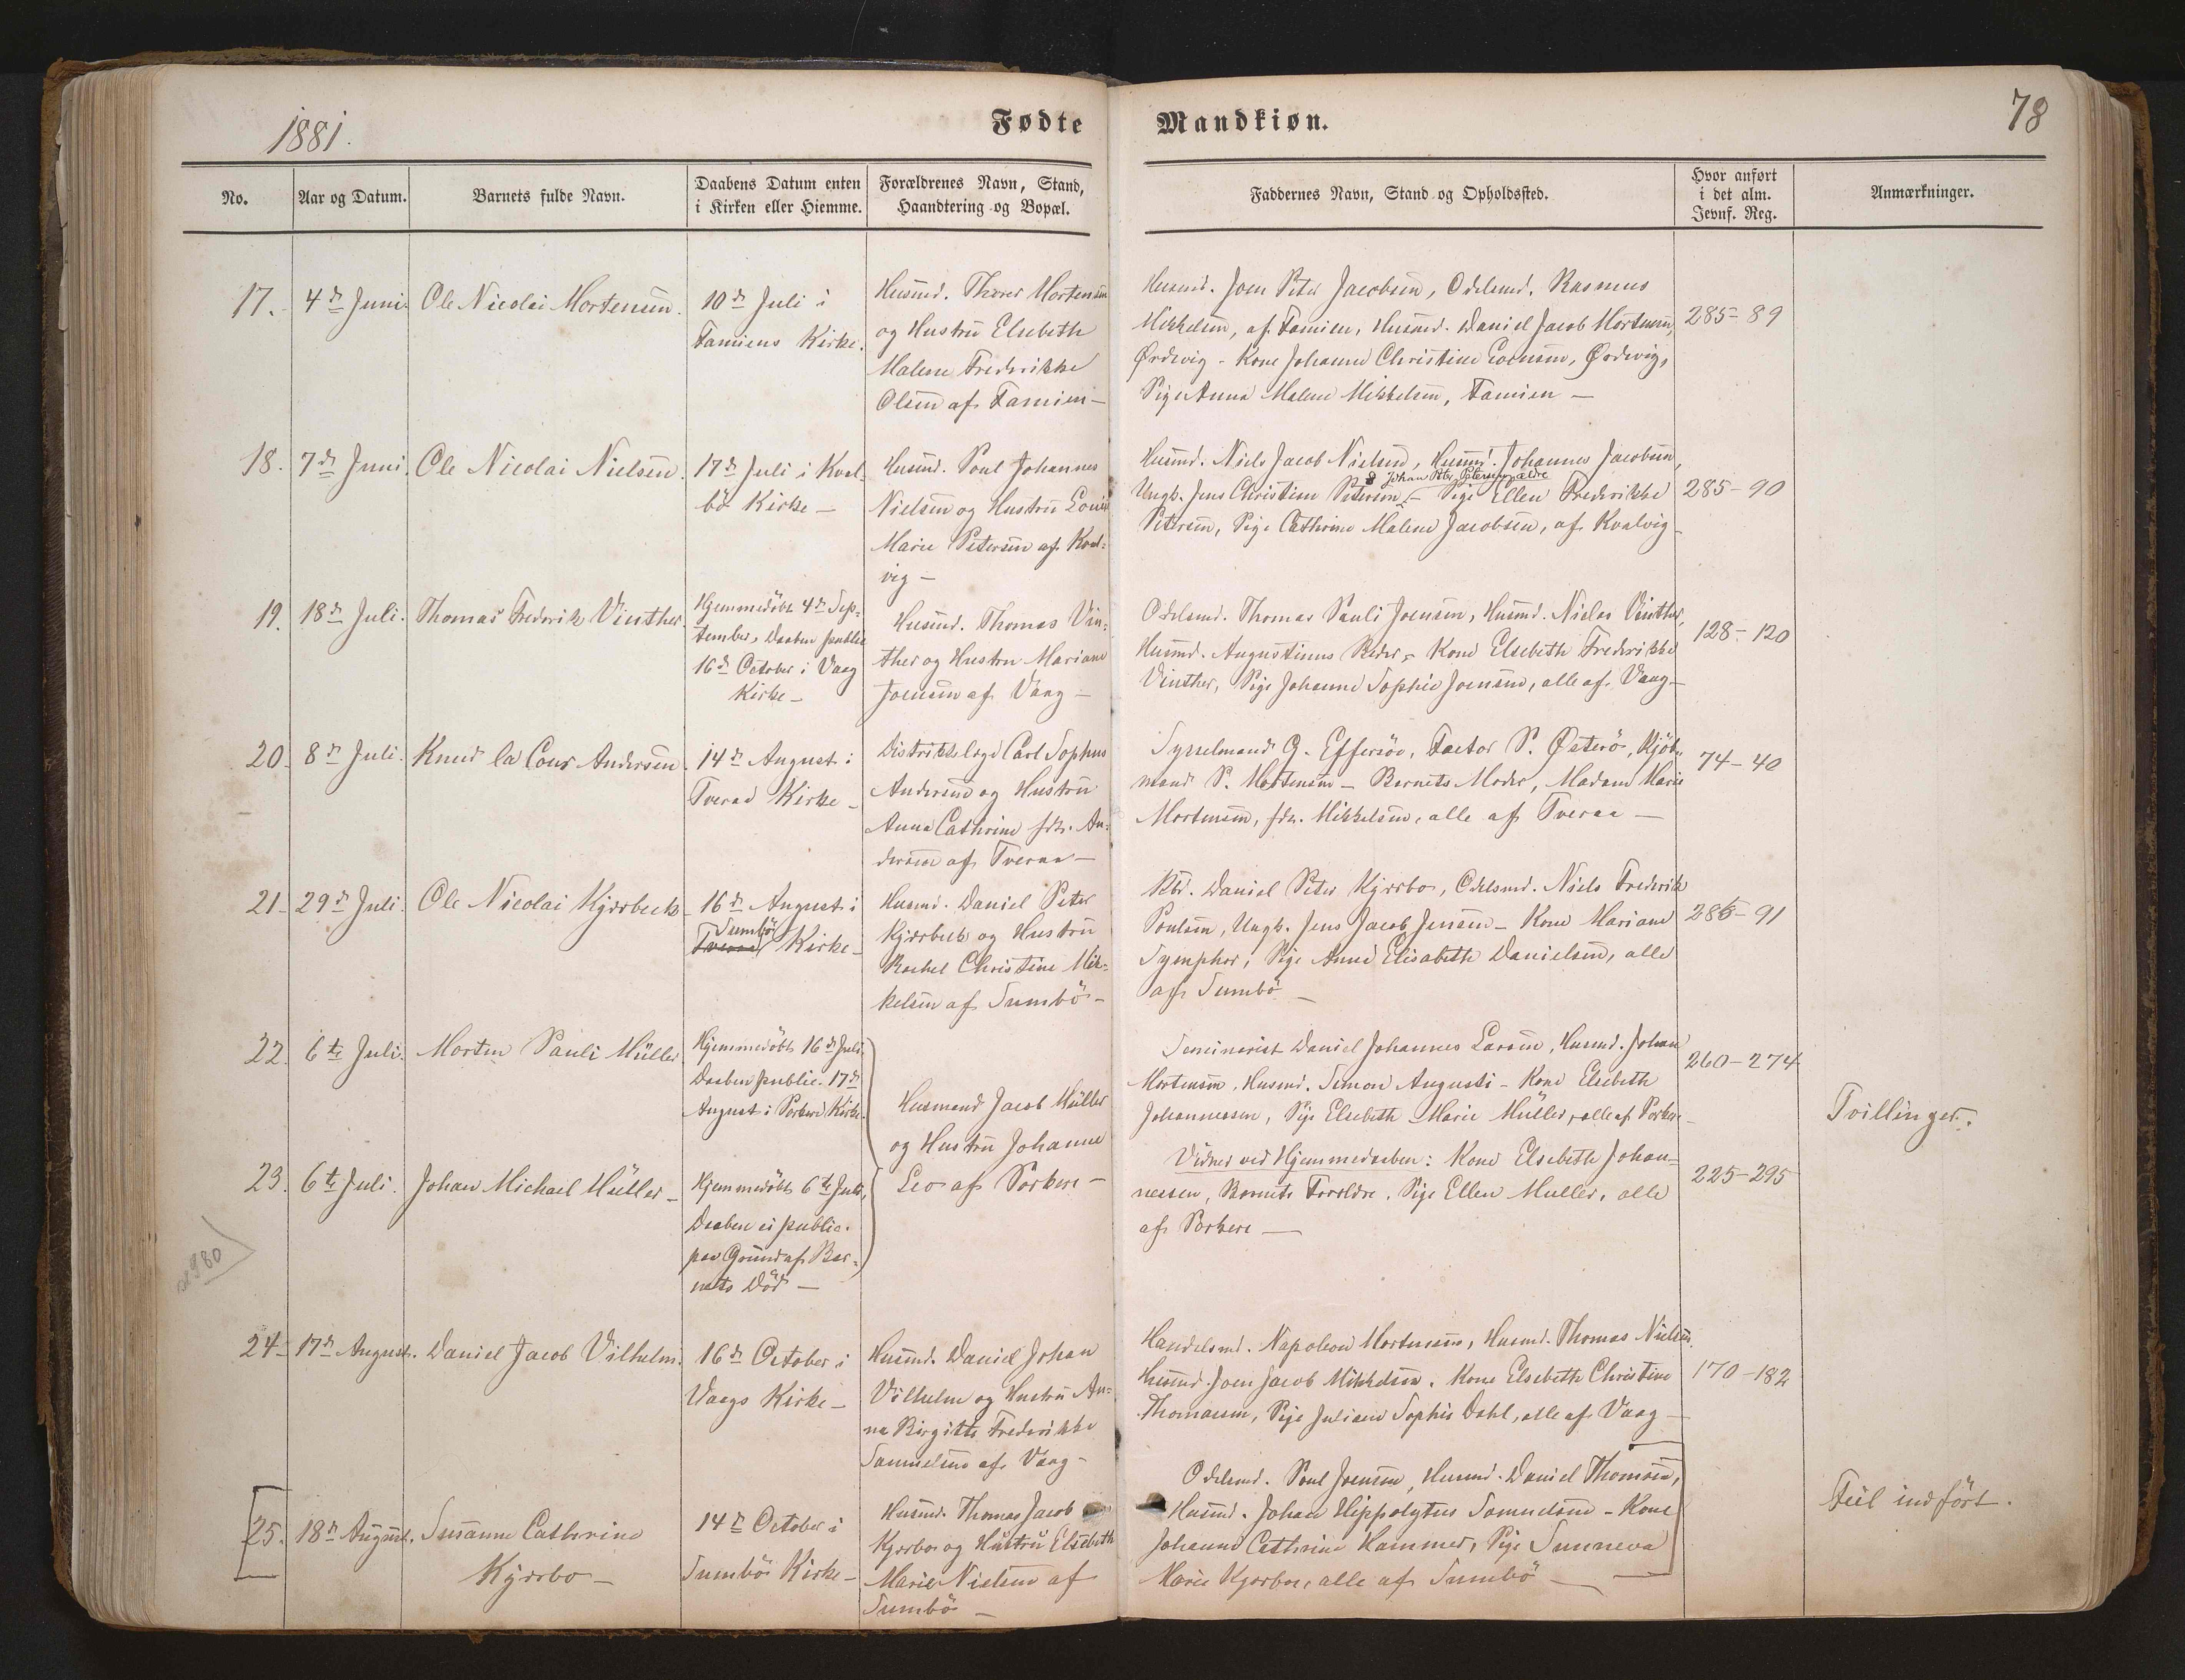 1881.
Fødte
Mandkiøn.
78
No.
Aar og Datum.
Barnets fulde Navn.
Daabens Datum enten
i Kirken eller Hiemme.
Forældrenes Navn, Stand,
Haandtering og Bopæl.
Faddernes Navn, Stand og Opholdssted.
Hvor anført
i det alm.
Jevnf. Reg.
Anmærkninger.
17.
4de Juni.
Ole Nicolai Mortensen.
10de Juli i
Famiens Kirke.
Husmd. Thorer Mortensen
og Hustru Elsebeth
Malene Frederikke
Olsen af Famien –
Husmd. Joen Peter Jacobsen, Odelsmd. Rasmus
Mikkelsen, af Famien, Husmd. Daniel Jacob Mortensen,
Ørdevig - Kone Johanne Christine Joensen, Ørdevig,
Pige Anna Malene Mikkelsen, Famien –
285-89
18.
7de Juni.
Ole Nicolai Nielsen.
17de Juli i Kval-
bø Kirke –
Husmd. Poul Johannes
Nielsen og Hustru Louise
Marie Petersen af Kval-
vig –
Husmd. Niels Jacob Nielsen, Husmd. Johannes Jacobsen,
& Johan Petr. Petersen, ældre
Ungk. Jens Christian Petersen, - Pige Ellen Frederikke
Petersen, Pige Cathrine Malene Jacobsen, af Kvalvig –
285-90
19.
18de Juli.
Thomas Frederik Vinther.
Hjemmedöbt 4de Sep-
tember, Daaben public.
16de October i Vaag
Kirke –
Husmd. Thomas Vin-
ther og Hustru Mariane
Joensen af Vaag –
Odelsmd. Thomas Pauli Joensen, Husmd. Niclas Vinther,
Husmd. Augustinus Peder - Kone Elsebeth Frederikke
Vinther, Pige Johanne Sophie Joensen, alle af Vaag –
128-120
20.
8de Juli.
Knud la Cour Andersen.
14de August i
Tveraa Kirke –
Distriktslæge Carl Sophus
Andersen og Hustru
Anna Cathrine fdt. An-
dersen af Tveraa –
Sysselmand G. Effersöe, Factor P. Østerö, Kjöb-
mand P. Mortensen - Barnets Moder, Madam Marie
Mortensen, fdt. Mikkelsen, alle af Tveraa –
74-40
21.
29de Juli.
Ole Nicolai Kjærbech
16de August i
Sumbö
Tveraa Kirke –
Husmd. Daniel Peter
Kjærbech og Hustru
Rachel Christine Mik-
kelsen af Sumbö –
Kbd. Daniel Peter Kjærbo, Odelsmd. Niels Frederik
Poulsen, Ungk. Jens Jacob Jensen - Kone Mariane
Symphor, Pige Anne Elisabeth Danielsen, alle
af Sumbö –
285-91
22.
6te Juli.
Morten Pauli Müller
Hjemmedöbt 16de Juli.
Daaben public. 17de
August i Porkere Kirke.
Husmand Jacob Müller
og Hustru Johanne
Leo af Porkere –
Seminarist Daniel Johannes Larsen, Husmd. Johan
Mortensen, Husmd. Simon Augusti - Kone Elsebeth
Johannessen, Pige Elsebeth Marie Müller, alle af Porkere –
260-274
Tvillinger.
23.
6te Juli.
Johan Michael Müller –
Hjemmedöbt 6te Juli,
Daaben ei public.
paa Grund af Bar-
nets Död –
Vidner ved Hjemmedaaben: Kone Elsebeth Johan-
nessen, Barnets Forældre, Pige Ellen Muller, alle
af Porkere –
225-295
24.
17de August.
Daniel Jacob Vilhelm.
16de October i
Vaags Kirke –
Husmd. Daniel Johan
Vilhelm og Hustru An-
na Birgitte Frederikke
Samuelsen af Vaag –
Handelsmd. Napoleon Mortensen, Husmd. Thomas Nielsen.
Husmd. Joen Jacob Mikkelsen. Kone Elsebeth Christine
Thomasen, Pige Juliane Sophie Dahl, alle af Vaag –
170-182
25.
18de August.
Susanne Cathrine
Kjærbo –
14de October i
Sumbö Kirke –
Husmd. Thomas Jacob
Kjærbo og Hustru Elsebeth
Marie Nielsen af
Sumbö –
Odelsmd. Poul Joensen, Husmd. Daniel Thomsen,
Husmd. Johan Hippolytus Samuelsen - Kone
Johanne Cathrine Hammer, Pige Sunneva
Marie Kjærbo, alle af Sumbö –
Feil indfört.